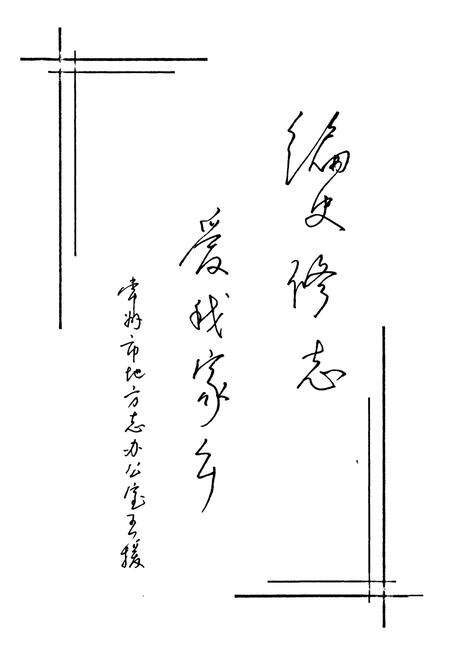 编史修志
爱我家乡
常州市地方志办公室王援